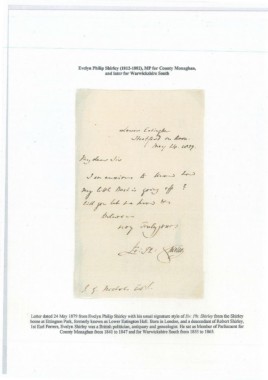 Evelyn Philip Shirley (1812-1882), MP for County Monaghan,
and later for Warwickshire South
Lower Eatington
Stratford on Avon
May 24. 1879
My dear Sir
I am anxious to know how
my little book is going off?
will you let me know &
believe me
very truly yours
Ev. Ph. Shirley
J. G. Nichols Esq.
Letter dated 24 May 1879 from Evelyn Philip Shirley with his usual signature style of Ev. Ph. Shirley from the Shirley
home at Ettington Park, formerly known as Lower Eatington Hall. Born in London, and a descendant of Robert Shirley,
1st Earl Ferrers, Evelyn Shirley was a British politician, antiquary and genealogist. He sat as Member of Parliament for
County Monaghan from 1841 to 1847 and for Warwickshire South from 1853 to 1865.